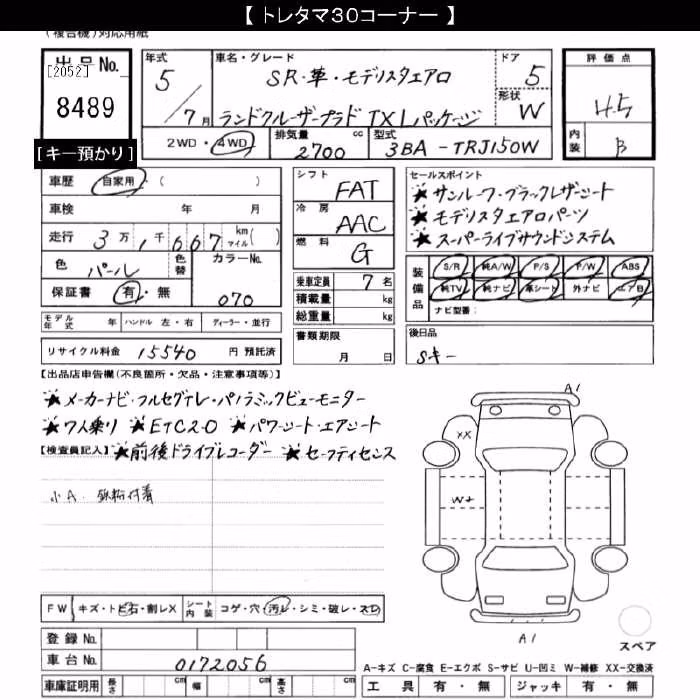 【トレタマ30コーナー】
(複合機)対応用紙
出品No.
[2052]
8489
[キー預かり]
年式 車名・グレード ドア 評価点
5 SR・革・モデリスタエアロ 5 4.5
形状
7月 ランドクルーザープラド TX Lパッケージ W
2WD・4WD 排気量 2700 cc 型式 3BA-TRJ150W 内装 B
車歴 自家用・( )
車検 年 月
走行 3万1千667 km マイル( )
色 パール 色替 カラーNo.
保証書 有・無 070
モデル年式 年 ハンドル 左・右 ディーラー・並行
リサイクル料金 15540 円 預託済
シフト FAT
冷房 AAC
燃料 G
乗車定員 7名
積載量 kg
総重量 kg
書類期限
月 日
セールスポイント
★サンルーフ・ブラックレザーシート
★モデリスタエアロパーツ
★スーパーライブサウンドシステム
装備品 S/R 純A/W P/S P/W ABS
純TV 純ナビ 革シート 外ナビ エアB
ナビ型番:
後日品
Sキー
【出品店申告欄(不良箇所・欠品・注意事項等)】
★メーカーナビ・フルセグTV・パノラミックビューモニター
★7人乗り ★ETC2.0 ★パワーシート・エアシート
【検査員記入】★前後ドライブレコーダー ★セーフティセンス
小A.
FW キズ・トビ石・割レX シート内装 コゲ・穴・汚レ・シミ・破レ・スレ
登録No.
車台No. 0172056
車庫証明用 長さ cm 幅 cm 高さ cm
A1
XX
W2
A1
スペア
A-キズ C-腐食 E-エクボ S-サビ U-凹ミ W-補修 XX-交換済
工具 有・無 ジャッキ 有・無